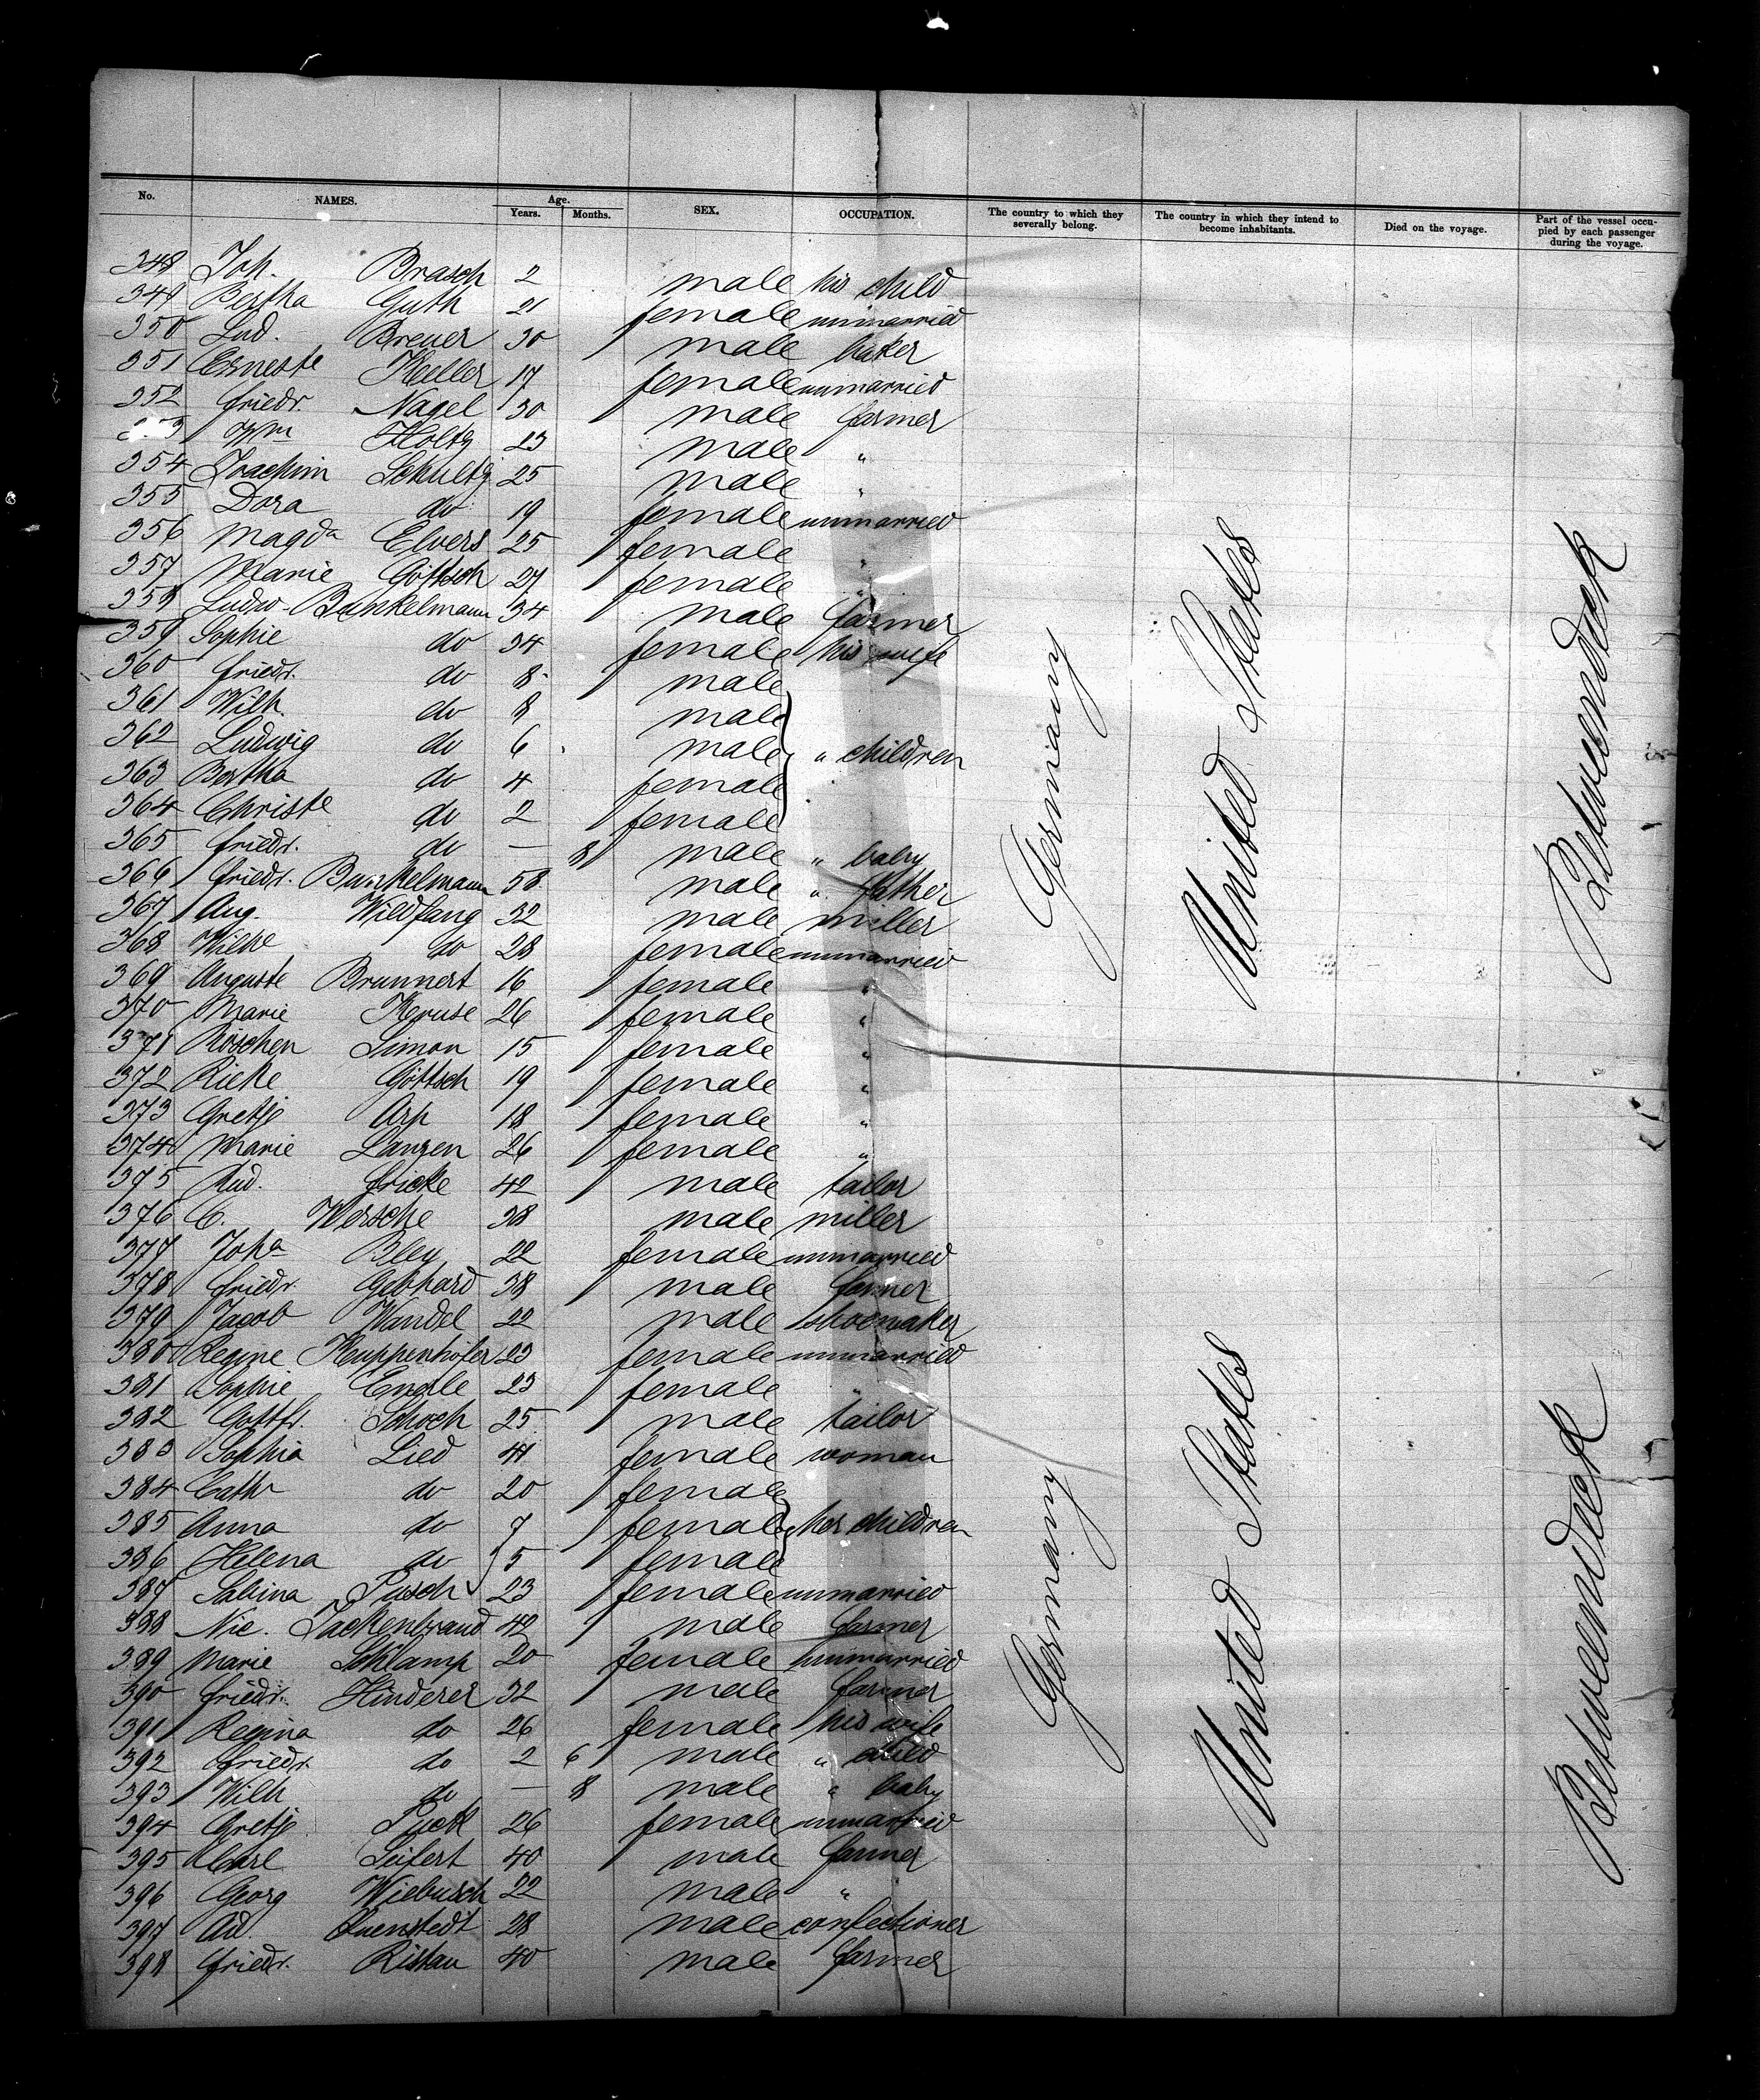 No. NAMES. Age. Years. Months. SEX. OCCUPATION. The country to which they severally belong. The country in which they intend to become inhabitants. Died on the voyage. Part of the vessel occupied by each passenger during the voyage.
348 Joh. Brasch 2 male his child
349 Bertha Guth 21 female unmarried
350 Lud. Breuer 30 male baker
351 Erneste Heller 17 female unmarried
352 Friedr. Nagel 30 male farmer
3 Wm Holtz 23 male "
354 Joachim Schultz 25 male "
355 Dora do 19 female unmarried
356 Magda Elvers 25 female "
357 Marie Göttsch 27 female "
358 Ludw. Bunkelmann 34 male farmer
359 Sophie do 34 female his wife
360 Friedr. do 8 male
361 Wilh. do 8 male
362 Ludwig do 6 male " children
363 Bertha do 4 female
364 Christe do 2 female
365 Friedr. do — 8 male " baby
366 Friedr. Bunkelmann 58 male " father
367 Aug. Wildfang 32 male miller
368 Wilhe do 28 female unmarried
369 Auguste Brunnert 16 female "
370 Marie Kruse 26 female "
371 Röschen Simon 15 female "
372 Rieke Göttsch 19 female "
373 Gretje Arp 18 female "
374 Marie Lanzen 26 female "
375 Rud. Fricke 42 male tailor
376 C. Wersche 38 male miller
377 Joha Bley 22 female unmarried
378 Friedr. Gebhard 38 male farmer
379 Jacob Wandel 22 male shoemaker
380 Regine Kuppenhöfer 23 female unmarried
381 Sophie Engle 23 female "
382 Gottfr. Schoch 25 male tailor
383 Sophia Lied 41 female woman
384 Cathr do 20 female
385 Anna do 7 female her children
386 Helena do 5 female
387 Sabina Pusch 23 female unmarried
388 Nic. Tackenbrand 42 male farmer
389 Marie Schlamp 20 female unmarried
390 Friedr. Hinderer 32 male farmer
391 Regina do 26 female his wife
392 Friedr. do 2 6 male " child
393 Wilh do — 8 male " baby
394 Gretje Puck 26 female unmarried
395 Carl Seifert 40 male farmer
396 Georg Wiebusch 22 male "
397 Ad. Quenstedt 28 male confectioner
398 Friedr. Ristau 40 male farmer
Germany United States Betweendeck
Germany United States Betweendeck